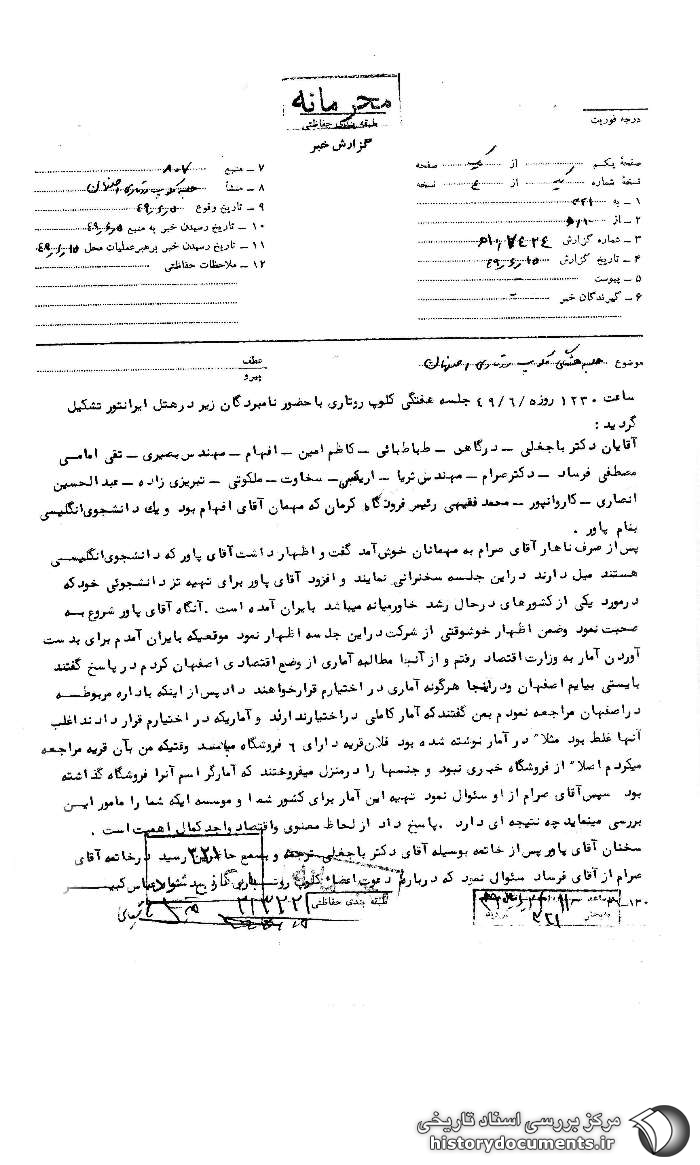 محرمانه
طبقه بندی حفاظتی
گزارش خبر
درجه فوریت
صفحه یکم از یک صفحه
نسخه شماره یک از ٤ نسخه
۱ ـ به ۳۲۱
۲ ـ از
۳ ـ شماره گزارش
٤ ـ تاریخ گزارش ٤٩٫٦٫١٥
۵ ـ پیوست ـ
۶ ـ گیرندگان خبر ـ
۷ ـ منبع ۸۰۷
۸ ـ منشأ جلسه کلوپ روتاری اصفهان
۹ ـ تاریخ وقوع ٤٩٫٦٫٥
۱۰ ـ تاریخ رسیدن خبر به منبع ٤٩٫٦٫٥
۱۱ ـ تاریخ رسیدن خبر برهبر عملیات محل ٤٩٫٦٫١٥
۱۲ ـ ملاحظات حفاظتی
موضوع جلسه هفتگی کلوپ روتاری اصفهان
عطف
پیرو
ساعت ۱۲۳۰ روز ٤٩/٦/٥ جلسه هفتگی کلوپ روتاری با حضور نامبردگان زیر در هتل ایرانتور تشکیل
گردید :
آقایان دکتر باجغلی ـ درگاهی ـ طباطبائی ـ کاظم امین ـ افهام ـ مهندس بصیری ـ تقی امامی
مصطفی فرساد ـ دکتر صرام ـ مهندس ثریا ـ ـ سخاوت ـ ملکوتی ـ تبریزی زاده ـ عبدالحسین
انصاری ـ کاروانپور ـ محمد فقیهی رئیس فرودگاه کرمان که مهمان آقای افهام بود و یک دانشجوی انگلیسی
بنام پاور .
پس از صرف ناهار آقای صرام به مهمانان خوش آمد گفت و اظهار داشت آقای پاور که دانشجوی انگلیسی
هستند میل دارند در این جلسه سخنرانی نمایند و افزود آقای پاور برای تهیه تز دانشجوئی خود که
در مورد یکی از کشورهای در حال رشد خاورمیانه میباشد بایران آمده است . آنگاه آقای پاور شروع به
صحبت نمود وضمن اظهار خوشوقتی از شرکت در این جلسه اظهار نمود موقعیکه بایران آمدم برای بدست
آوردن آمار به وزارت اقتصاد رفتم و از آنجا مطالبه آماری از وضع اقتصادی اصفهان کردم در پاسخ گفتند
بایستی بیایم اصفهان ودراینجا هرگونه آماری در اختیارم قرار خواهند داد پس از اینکه باداره مربوطه
در اصفهان مراجعه نمودم بمن گفتند که آمار کاملی در اختیارندارند و آماریکه در اختیارم قرار دادند اغلب
آنها غلط بود مثلا" در آمار نوشته شده بود فلان قریه دارای ۶ فروشگاه میباشد وقتیکه من بآن قریه مراجعه
میکردم اصلا" از فروشگاه خبری نبود و جنسها را در منزل میفروختند که آمارگر اسم آنرا فروشگاه گذاشته
بود سپس آقای صرام از او سئوال نمود تهیه این آمار برای کشور شما و موسسه ایکه شما را مامور این
بررسی مینماید چه نتیجه ای دارد . پاسخ داد از لحاظ معنوی واقتصاد واجد کمال اهمیت است .
سخنان آقای پاور پس از خاتمه بوسیله آقای دکتر باجغلی ترجمه و بسمع حاضرین رسید درخاتمه آقای
صرام از آقای فرساد سئوال نمود که درباره دعوت اعضاء کلوپ
طبقه بندی حفاظتی
۳۲۱
مرکز بررسی اسناد تاریخی
historydocuments.ir